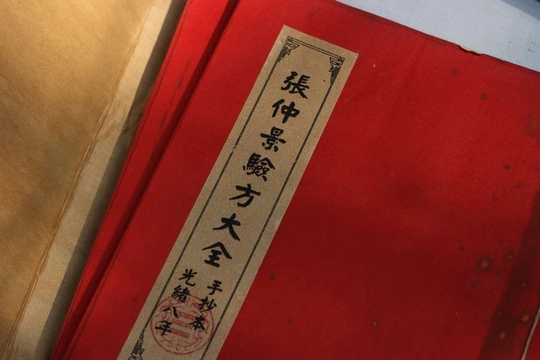 張仲景驗方大全
手抄本
光緒八年